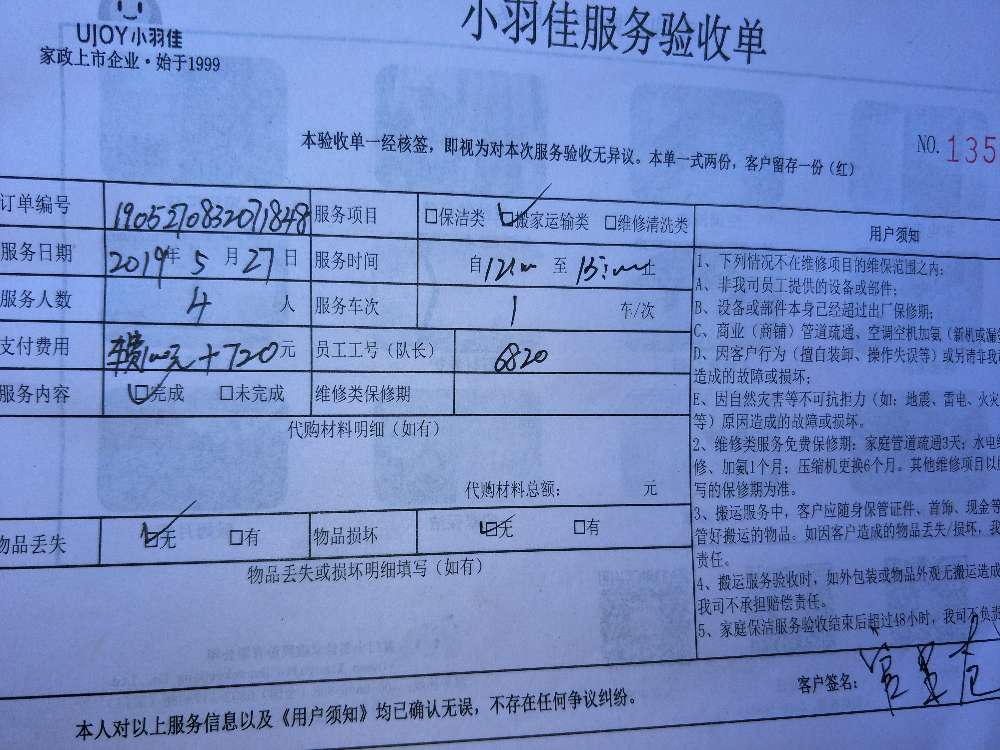 UJOY小羽佳
家政上市企业·始于1999
小羽佳服务验收单
本验收单一经核签，即视为对本次服务验收无异议。本单一式两份，客户留存一份（红）
NO. 135
订单编号 1905270832071848 服务项目 □保洁类 ☑搬家运输类 □维修清洗类
服务日期 2019年 5 月 27 日 服务时间 自 至
服务人数 4 人 服务车次 1 车/次
支付费用 车费100元+720元 员工工号（队长） 6820
服务内容 ☑完成 □未完成 维修类保修期
代购材料明细（如有）
代购材料总额： 元
物品丢失 ☑无 □有 物品损坏 ☑无 □有
物品丢失或损坏明细填写（如有）
用户须知
1、下列情况不在维修项目的维保范围之内：
A、非我司员工提供的设备或部件；
B、设备或部件本身已经超过出厂保修期；
C、商业（商铺）管道疏通、空调空机加氨（新机或漏
D、因客户行为（擅自装卸、操作失误等）或另请非我
造成的故障或损坏；
E、因自然灾害等不可抗拒力（如：地震、雷电、火
等）原因造成的故障或损坏。
2、维修类服务免费保修期：家庭管道疏通3天；水电
修、加氨1个月；压缩机更换6个月。其他维修项目以
写的保修期为准。
3、搬运服务中，客户应随身保管证件、首饰、现金等
管好搬运的物品。如因客户造成的物品丢失/损坏，我
责任。
4、搬运服务验收时，如外包装或物品外观无搬运造成
我司不承担赔偿责任。
5、家庭保洁服务验收结束后超过48小时，我司不负责
客户签名：
本人对以上服务信息以及《用户须知》均已确认无误，不存在任何争议纠纷。